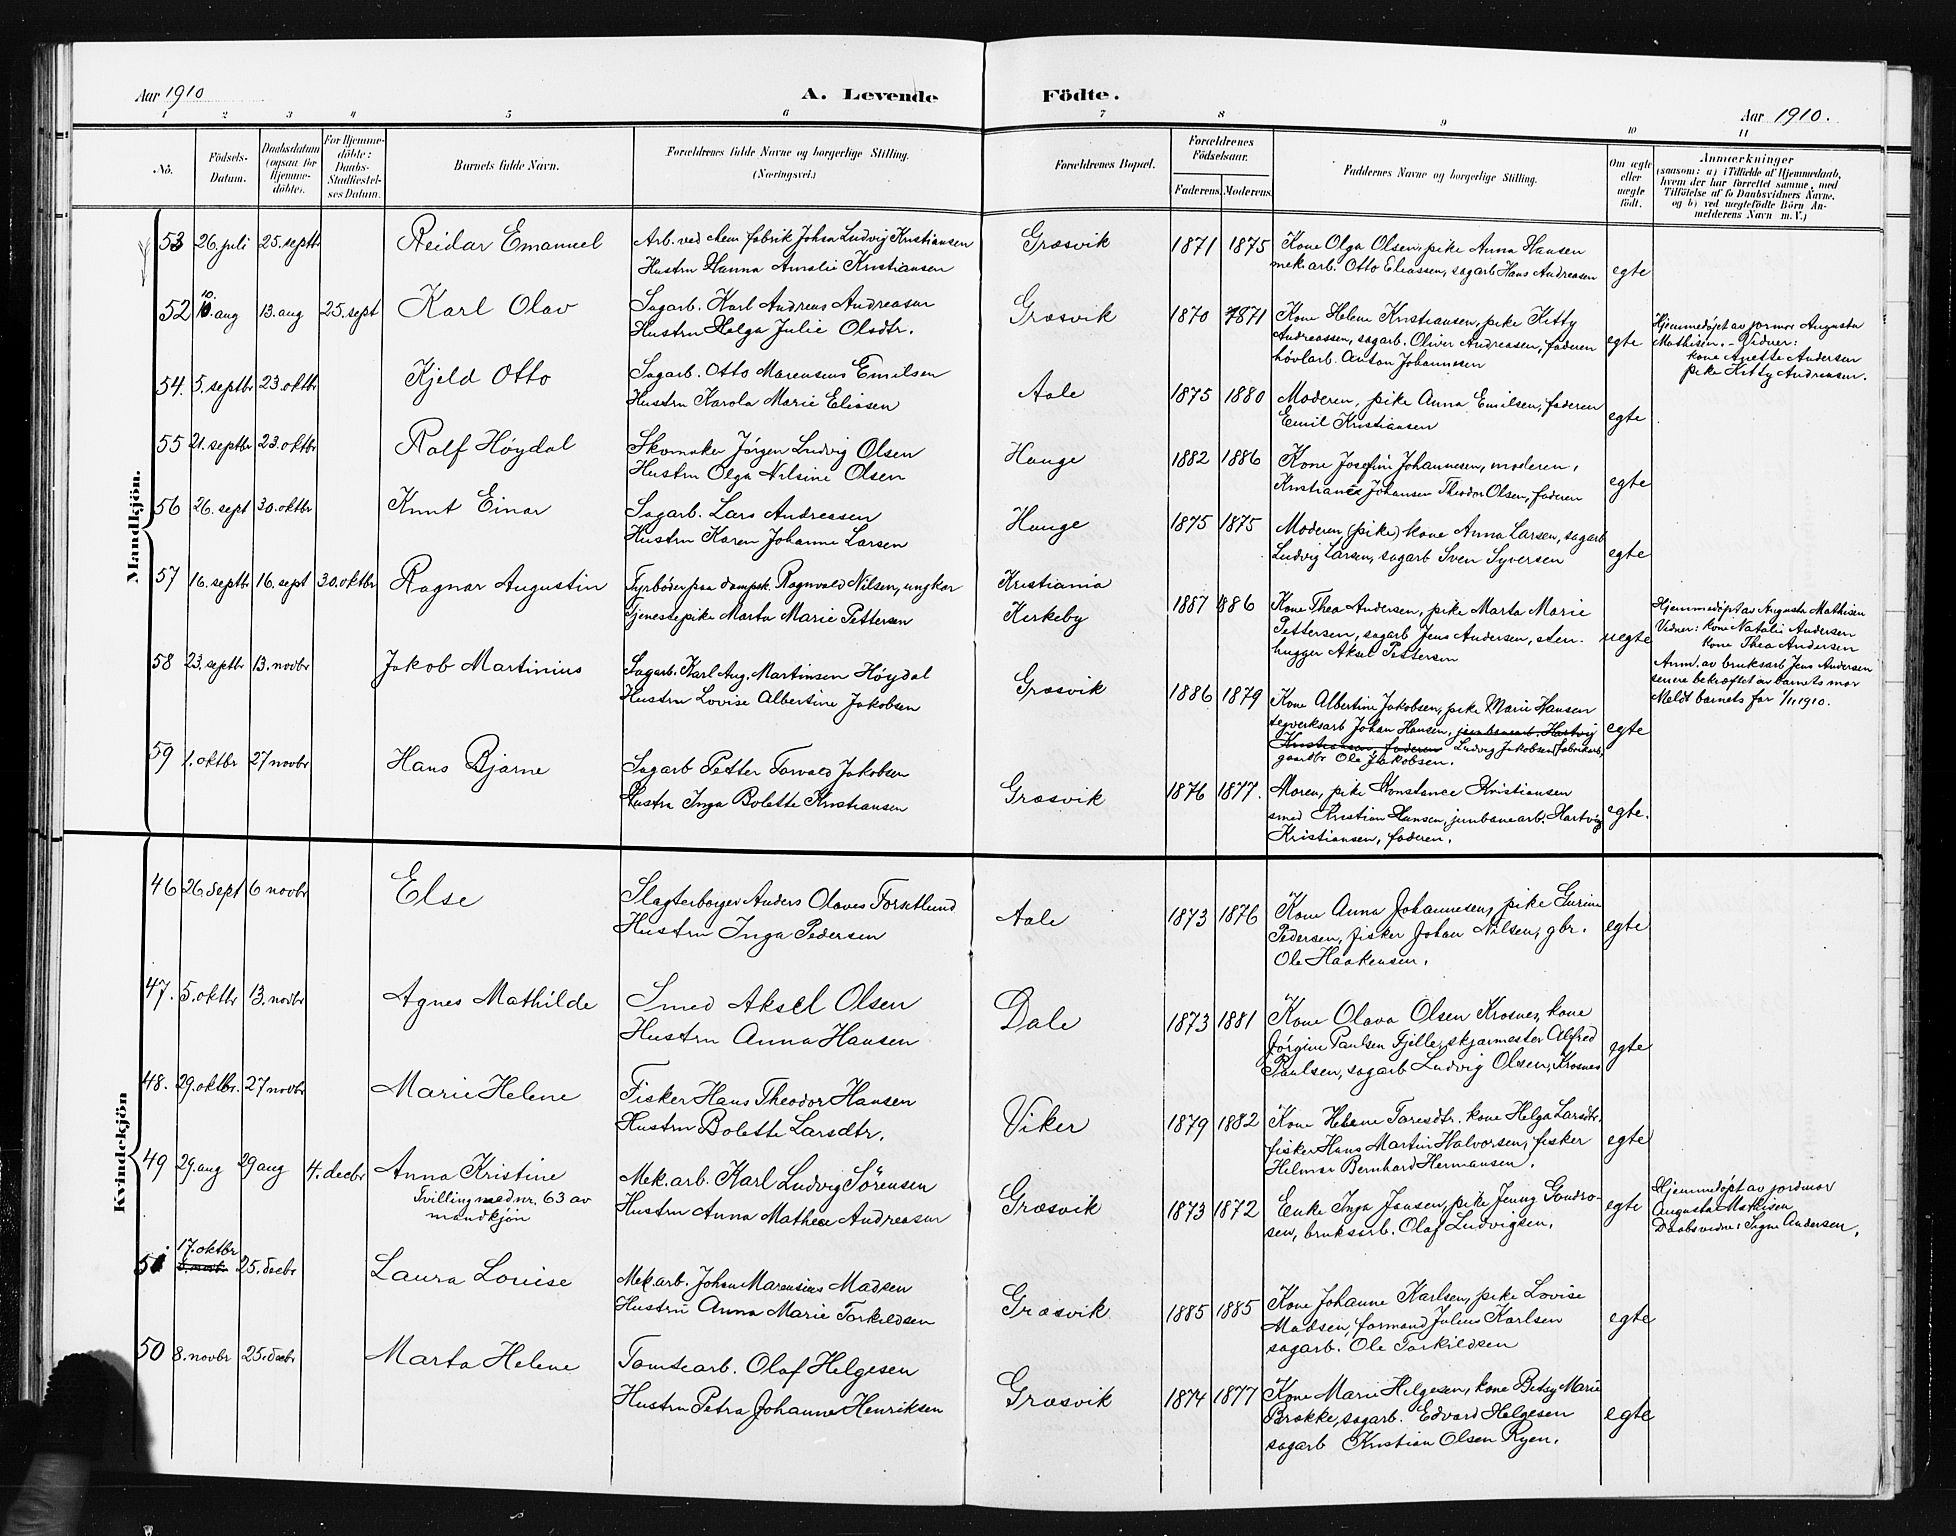 Aar 1910
A. Levende Födte.
Aar 1910.
1 2 3 4 5 6 7 8 9 10 11
No.
Födsels-
Datum.
Daabsdatum
(ogsaa for
Hjemme-
döbte).
For Hjemme-
döbte:
Daabs-
Stadfæstel-
ses Datum.
Barnets fulde Navn.
Forældrenes fulde Navne og borgerlige Stilling.
(Næringsvei.)
Forældrenes Bopæl.
Forældrenes
Födselsaar.
Faderens. Moderens.
Faddernes Navne og borgerlige Stilling.
Om ægte
eller
uegte
födt.
Anmærkninger
(saasom: a) i Tilfælde af Hjemmedaab,
hvem der har forrettet samme, med
Tilföielse af to Daabsvidners Navne.
og b) ved uegtefödte Börn An-
melderens Navn m. V.)
Mandkjön.
53 26. juli 25. septbr Reidar Emanuel
Arb. ved chem fabrik Johan Ludvig Kristiansen
Hustru Hanna Amalie Kristiansen
Græsvik 1871 1875
Kone Olga Olsen, pike Anna Hansen
mek arb. Otto Eliassen, sagarb Hans Andreasen
egte
52 10. aug 13. aug 25. sept Karl Olav
Sagarb. Karl Andreas Andreasen
Hustru Helga Julie Olsdtr.
Græsvik 1870 1871
Kone Helene Kristiansen, pike Kitty
Andreassen, sagarb. Oliver Andreasen, faderen
hövlarb. Anton Johannesen
egte
Hjemmedøpt av jormor Augusta
Mathisen. - Vidner:
kone Anette Andersen
pike Kitty Andreasen.
54. 5. septbr 23. oktbr Kjeld Otto
Sagarb. Otto Marensius Emilsen
Hustru Karola Marie Eliasen
Aale 1875 1880
Moderen, pike Anna Emilsen, faderen
Emil Kristiansen
egte
55 21. septbr 23. oktbr Rolf Høydal
Skomaker Jørgen Ludvig Olsen
Hustru Olga Nilsine Olsen
Hauge 1882 1886
Kone Josefine Johannesen, moderen,
Kristian Johansen Theodor Olsen, faderen
egte
56 26. sept 30. oktbr Knut Einar
Sagarb. Lars Andreasen
Hustru Karen Johanne Larsen
Hauge 1875 1875
Moderen, (pike) kone Anna Larsen, sagarb
Ludvig Larsen, sagarb Sven Syversen
egte
57 16. septbr 16. sept 30. oktbr Ragnar Augustin
Fyrbøder paa dampsk. Ragnvald Nilsen, ungkar
Tjenestepike Marta Marie Pettersen
Kristiania
Kirkeby
1887 1886
Kone Thea Andersen, pike Marta Marie
Pettersen, sagarb Jens Andersen, sten-
hugger Aksel Pettersen
uegte
Hjemmedøpt av Augusta Mathisen
Vidner: kone Natalie Andersen
kone Thea Andersen
Anm. av bruksarb Jens Andersen
senere bekræftet av barnets mor
Meldt barnets far 1/11 1910.
58 23. septbr 13. novbr Jakob Martinius
Sagarb. Karl Aug. Martinsen Høydal
Hustru Lovise Albertine Jakobsen
Græsvik 1886 1879
Kone Albertine Jakobsen, pike Marie Hansen
tegverksarb Johan Hansen, jernbanearb. Hartvig
Kristiansen, faderen Ludvig Jakobsen fabrikarb,
gaardbr Ole Jakobsen.
egte
59 1. oktbr 27 novbr Hans Bjarne
Sagarb Petter Torvald Jakobsen
Hustru Inga Bolette Kristiansen
Græsvik 1876 1877.
Moren, pike Konstance Kristiansen
smed Kristian Hansen, jernbanearb. Hartvig
Kristiansen, faderen.
egte.
Kvindekjön
46 26 sept 6 novbr Else
Slagterborger Anders Olaves Forsetlund
Hustru Inga Pedersen
Aale 1873 1876
Kone Anna Johannesen, pike Gurine
Pedersen, fisker Johan Nilsen, gbr.
Ole Haakensen.
egte
47. 5. oktbr 13. novbr Agnes Mathilde
Smed Aksel Olsen
Hustru Anna Hansen
Dale 1873 1881
Kone Olava Olsen Krosnes, kone
Jørgine Paulsen Fjelle, skjærmester Alfred
Paulsen, sagarb Ludvig Olsen, Krosnes
egte
48. 29. oktbr. 27 novbr Marie Helene
Fisker Hans Theodor Hansen
Hustru Bolette Larsdtr.
Viker 1879 1882
Kone Helene Taresdtr. kone Helga Larsdtr.
fisker Hans Martin Halvorsen, fisker
Helmer Bernhard Hermansen.
egte
49 29. aug 29 aug 4. decbr Anna Kristine
Tvilling med nr. 63 av
mandkjøn
Mek. arb. Karl Ludvig Sørensen
Hustru Anna Mathea Andreasen
Græsvik 1873 1872
Enke Inga Jansen, pike Jenny Gondro-
sen, bruksarb. Olaf Ludvigsen.
egte
Hjemmedøpt av jordmor
Augusta Mathisen
Daabsvidne: Signe Andersen.
51 17. oktbr 25. decbr Laura Louise
Mek. arb. Johan Marensius Madsen
Hustru Anna Marie Torkildsen
Græsvik 1885 1885
Kone Johanne Karlsen, pike Lovise
Madsen, formand Julius Karlsen
sagarb. Ole Torkildsen
egte
50 8. novbr 25. decbr Marta Helene
Tomtearb. Olaf Helgesen
Hustru Petra Johanne Henriksen
Græsvik 1874 1877
Kone Marie Helgesen, kone Betsy Marie
Brokke, sagarb. Edvard Helgesen
sagarb Kristian Olsen Ryen.
egte